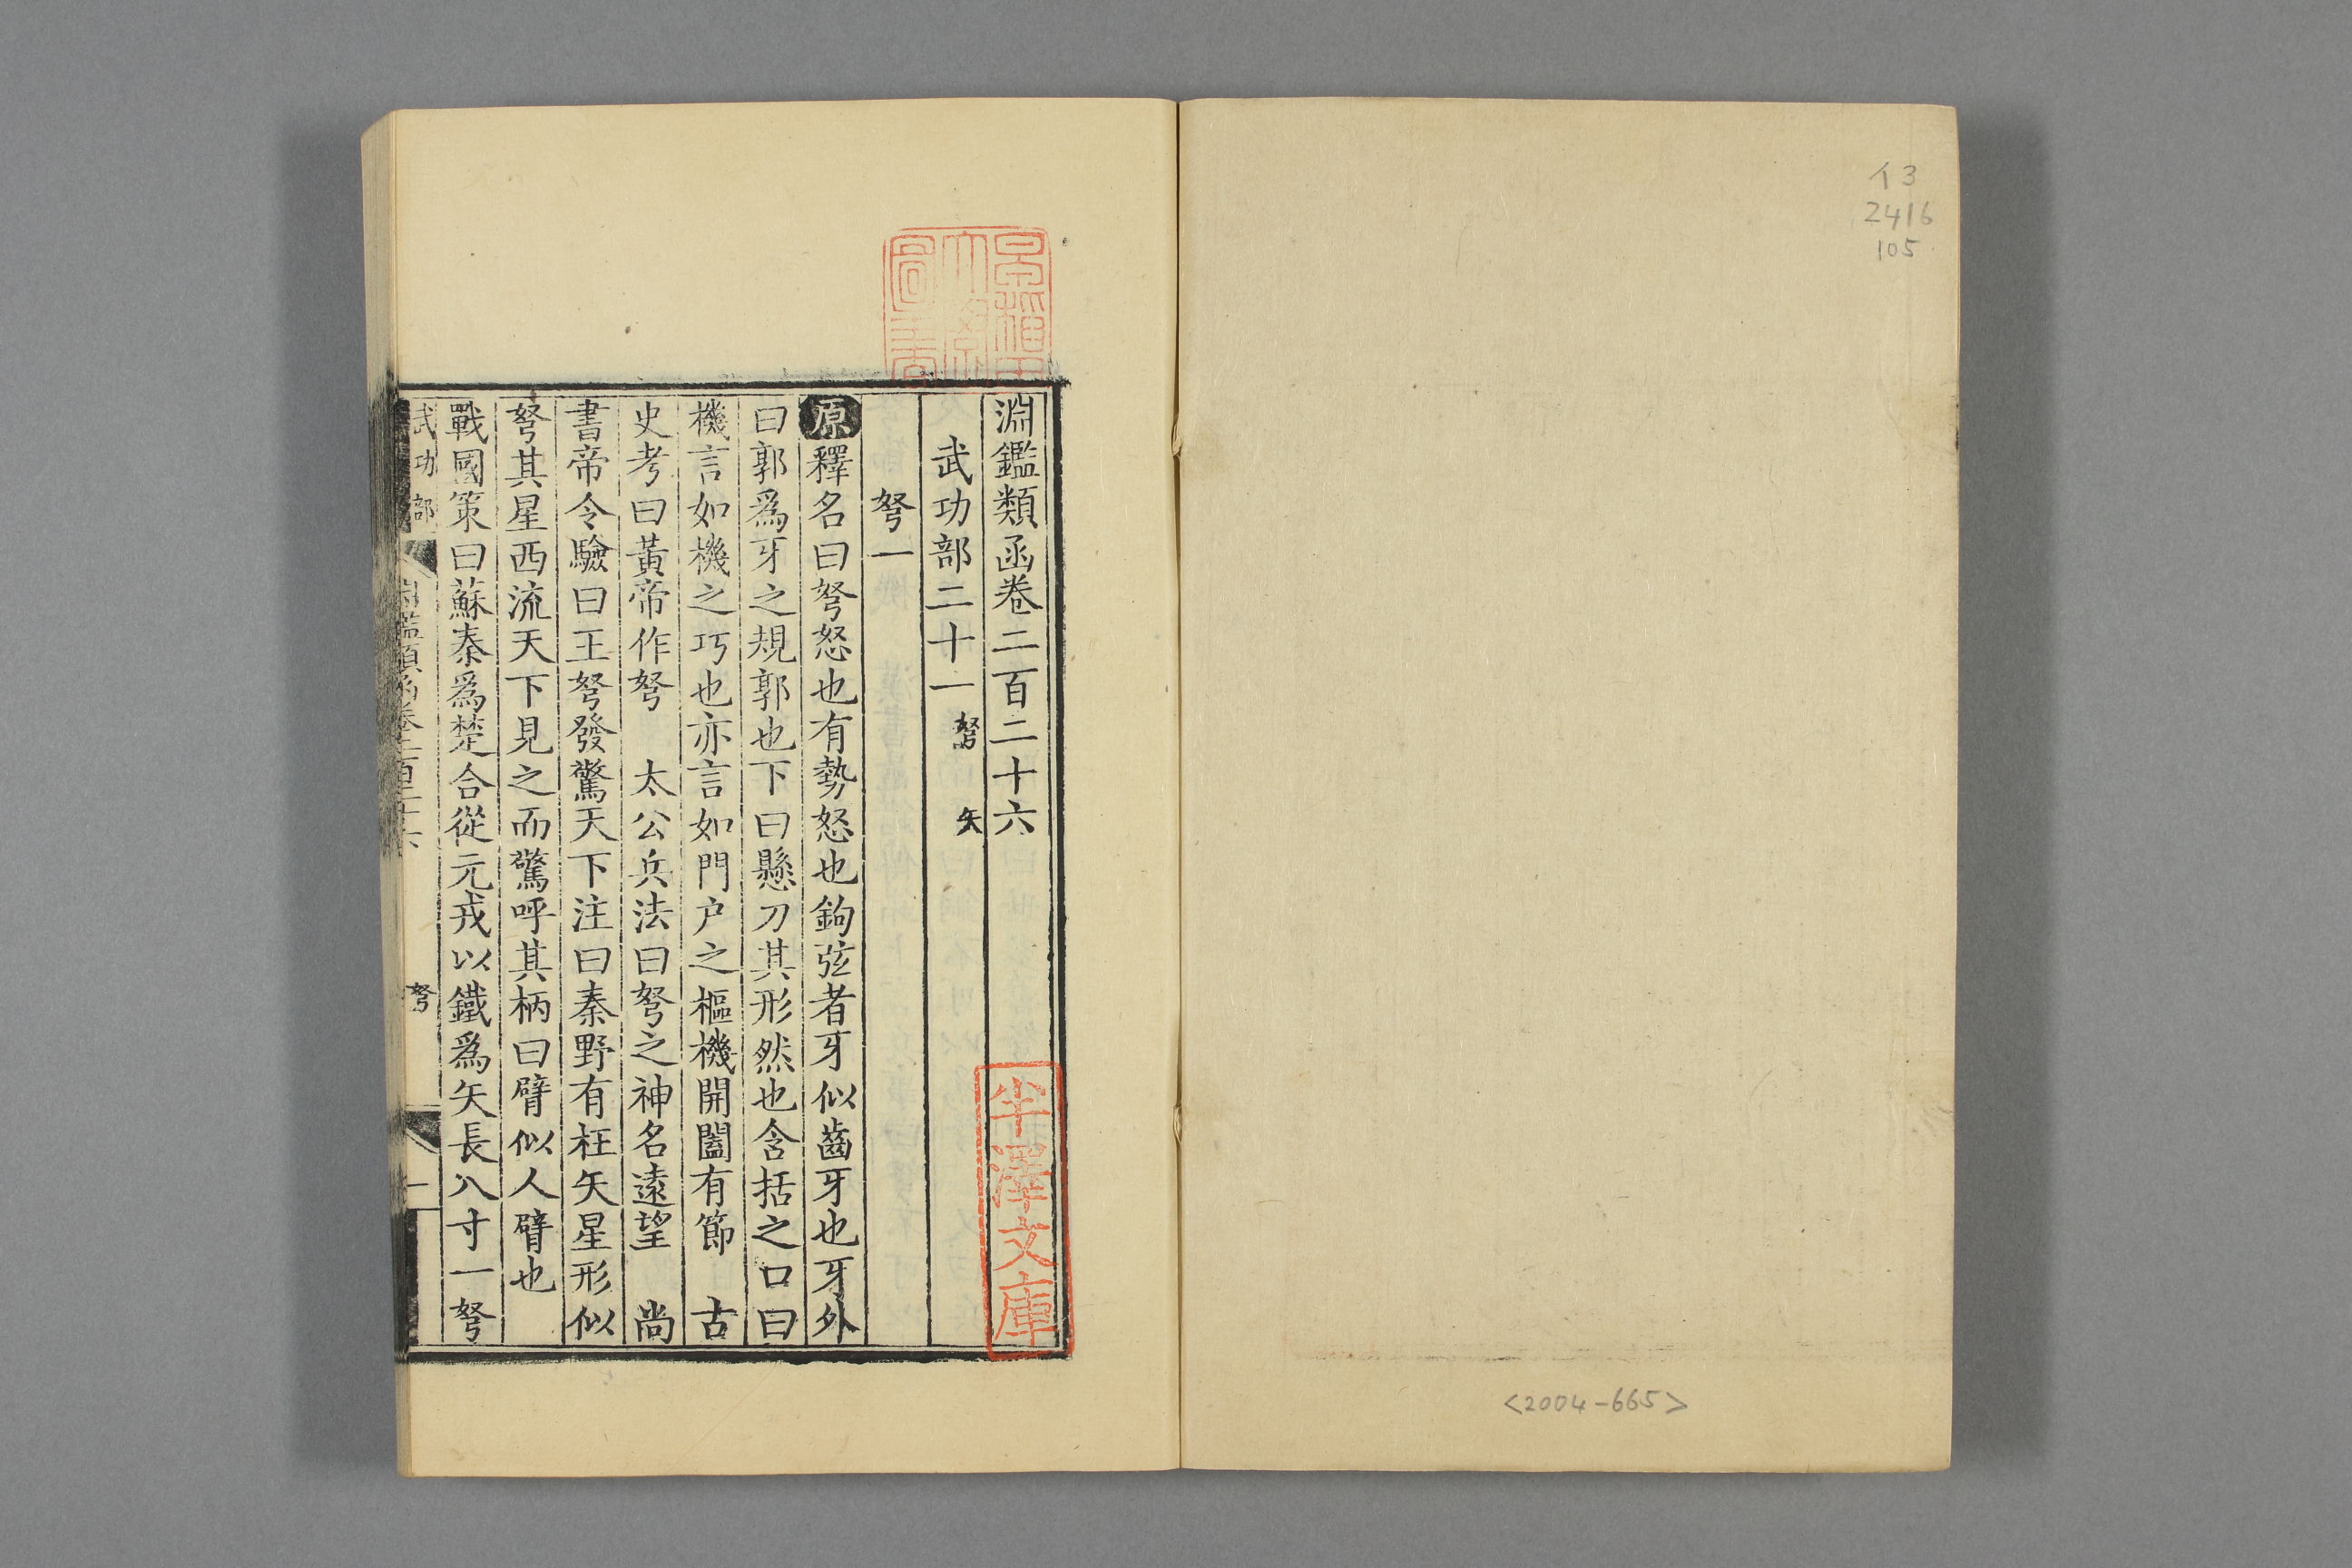 イ3
2416
105
<2004-665>
早稲田大學圖書
淵鑑類函卷二百二十六
半澤文庫
武功部二十一 弩 矢
弩一
原釋名曰弩怒也有勢怒也鉤弦者牙似齒牙也牙外
曰郭爲牙之規郭也下曰懸刀其形然也含括之口曰
機言如機之巧也亦言如門户之樞機開闔有節 古
史考曰黃帝作弩 太公兵法曰弩之神名遠望 尚
書帝令驗曰王弩發驚天下注曰秦野有枉矢星形似
弩其星西流天下見之而驚呼其柄曰臂似人臂也
戰國策曰蘇秦爲楚合從元戎以鐵爲矢長八寸一弩
武功部 淵鑑類函卷二百二十六 弩 一